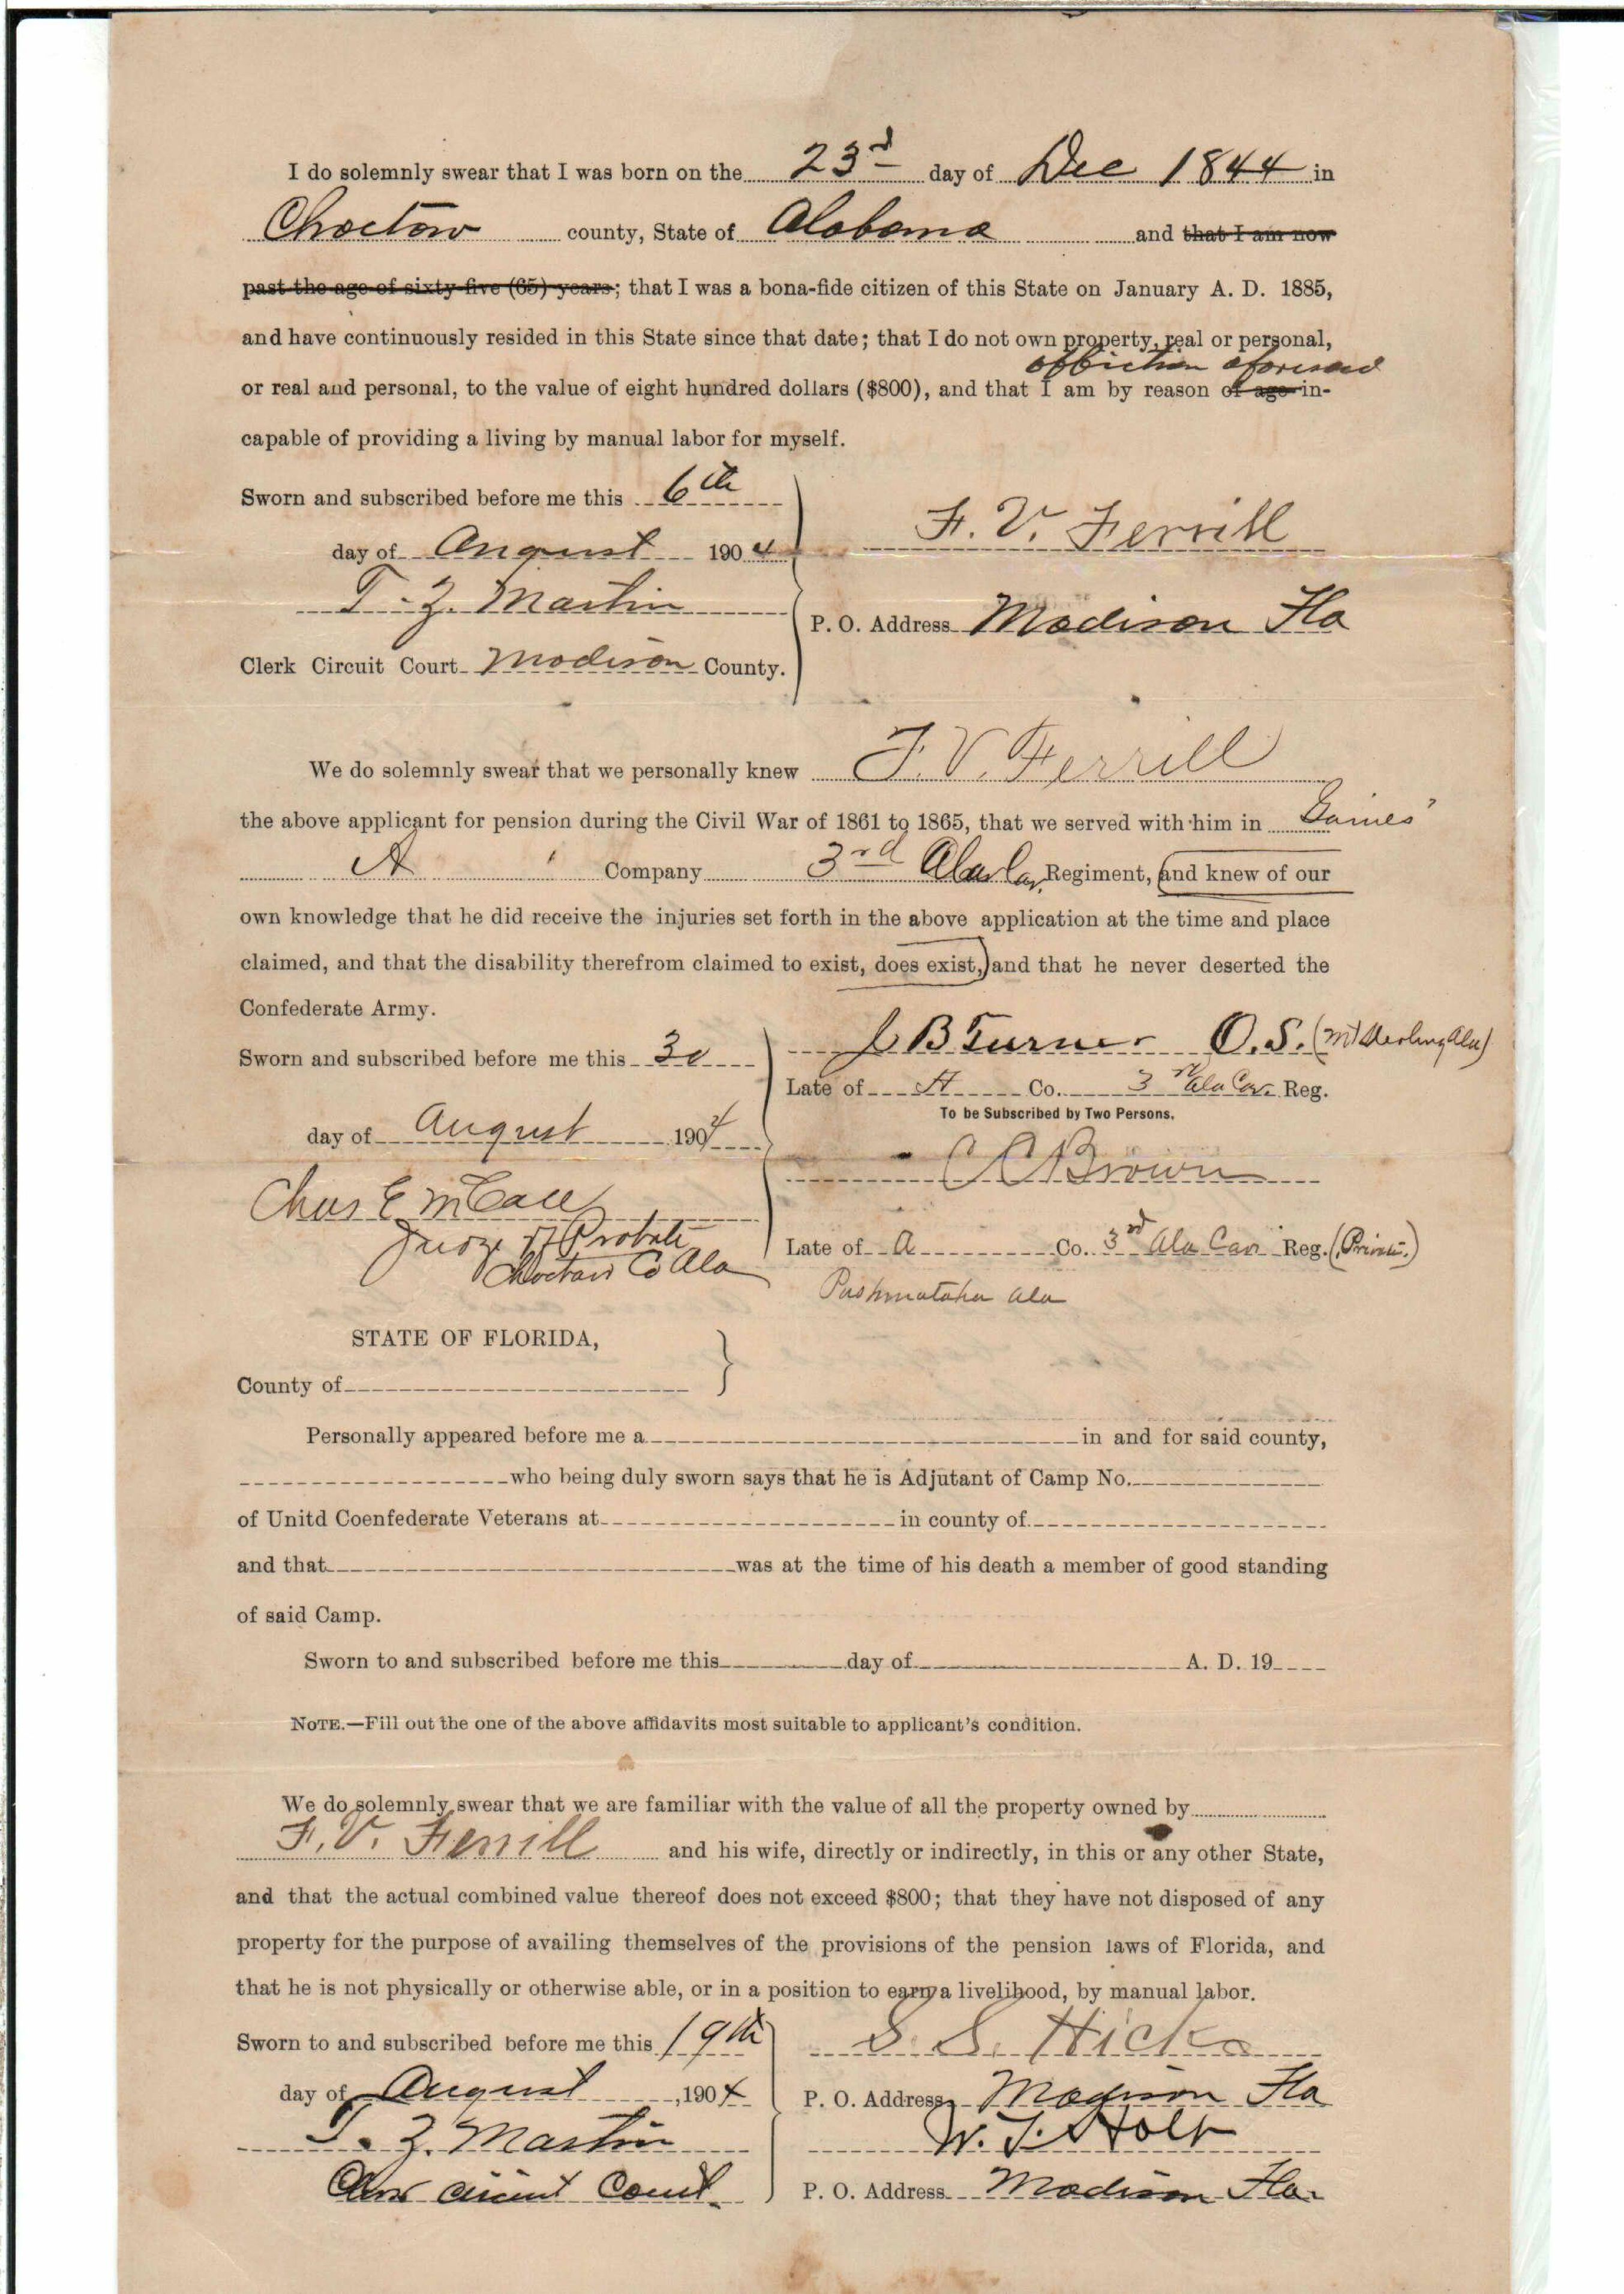 I do solemnly swear that I was born on the 23rd day of Dec 1844 in
Choctaw county, State of Alabama and that I am now
past the age of sixty-five (65) years; that I was a bona-fide citizen of this State on January A. D. 1885,
and have continuously resided in this State since that date; that I do not own property, real or personal,
affliction aforesaid
or real and personal, to the value of eight hundred dollars ($800), and that I am by reason of age in-
capable of providing a living by manual labor for myself.
Sworn and subscribed before me this 6th
day of August 1904
F. V. Ferrill
T. Z. Martin
P. O. Address Madison Fla
Clerk Circuit Court Madison County.
We do solemnly swear that we personally knew F. V. Ferrill
the above applicant for pension during the Civil War of 1861 to 1865, that we served with him in Gaines'
A Company 3rd Ala Cav. Regiment, and knew of our
own knowledge that he did receive the injuries set forth in the above application at the time and place
claimed, and that the disability therefrom claimed to exist, does exist, and that he never deserted the
Confederate Army.
J B Turner O.S. (Mt Sterling Ala)
Sworn and subscribed before me this 30
Late of A Co. 3rd Ala Cav. Reg.
To be Subscribed by Two Persons.
day of August 1904
C C Brown
Chas E McCall
Judge of Probate
Choctaw Co Ala
Late of A Co. 3rd Ala Cav Reg. (Private.)
Pushmataha Ala
STATE OF FLORIDA,
County of
Personally appeared before me a in and for said county,
who being duly sworn says that he is Adjutant of Camp No.
of Unitd Coenfederate Veterans at in county of
and that was at the time of his death a member of good standing
of said Camp.
Sworn to and subscribed before me this day of A. D. 19
NOTE.—Fill out the one of the above affidavits most suitable to applicant's condition.
We do solemnly swear that we are familiar with the value of all the property owned by
F. V. Ferrill and his wife, directly or indirectly, in this or any other State,
and that the actual combined value thereof does not exceed $800; that they have not disposed of any
property for the purpose of availing themselves of the provisions of the pension laws of Florida, and
that he is not physically or otherwise able, or in a position to earn a livelihood, by manual labor.
Sworn to and subscribed before me this 19th
S. S. Hicks
day of August, 1904
P. O. Address Madison Fla
T. Z. Martin
W. T. Holt
Clerk Circuit Court
P. O. Address Madison Fla.